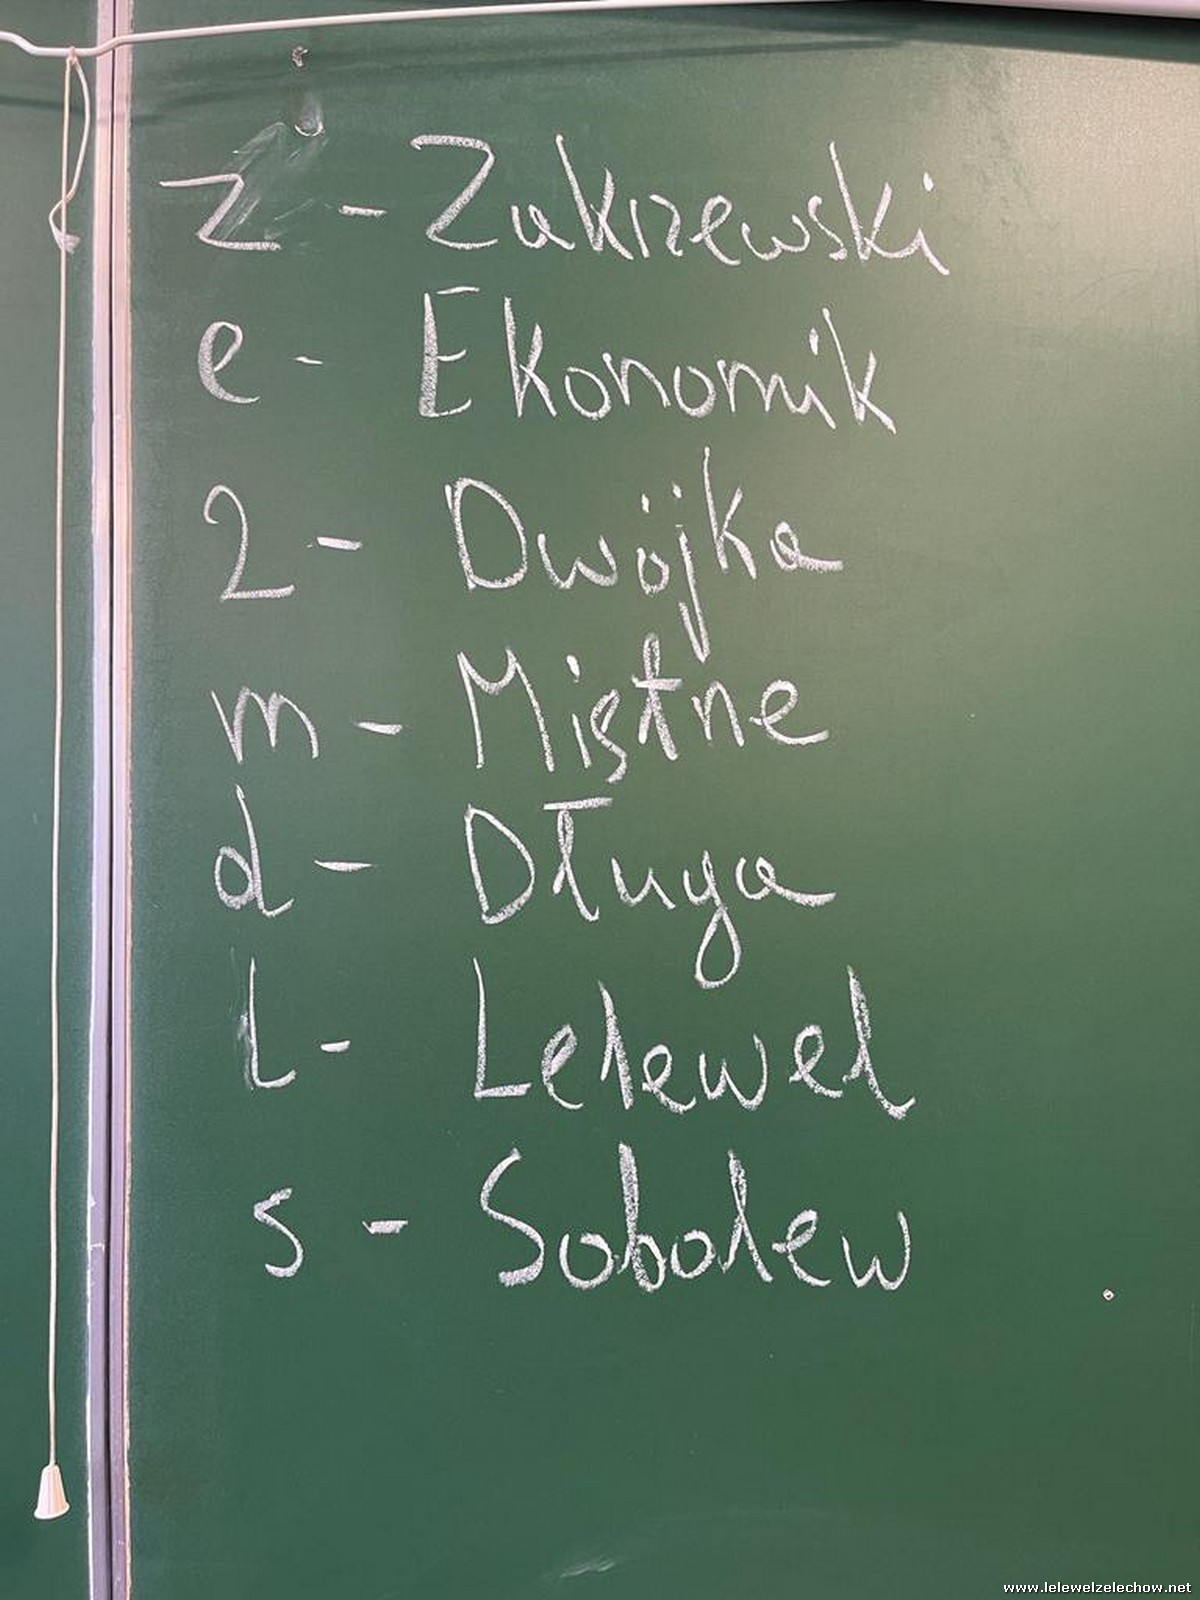 z - Zakrzewski
e - Ekonomik
2 - Dwójka
m - Miętne
d - Długa
L - Lelewel
s - Sobolew
www.lelewelzelechow.net